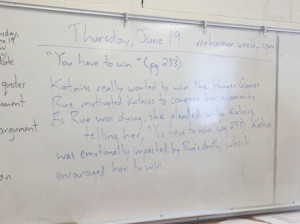 Thursday, June 19
"You have to win" (pg 233)
Katniss really wanted to win the Hunger Games
Rue motivated Katniss to conquer her opponents
As Rue was dying, she pleaded with Katniss
telling her, "You have to win (pg 233). Katniss
was emotionally impacted by Rue's death, which
encouraged her to win.
quotes
argument